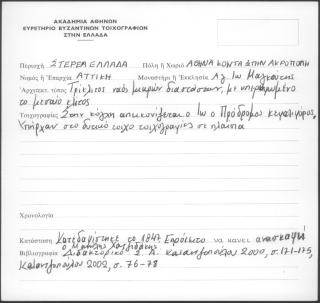 ΑΚΑΔΗΜΙΑ ΑΘΗΝΩΝ
ΕΥΡΕΤΗΡΙΟ ΒΥΖΑΝΤΙΝΩΝ ΤΟΙΧΟΓΡΑΦΙΩΝ
ΣΤΗΝ ΕΛΛΑΔΑ
Περιοχή ΣΤΕΡΕΑ ΕΛΛΑΔΑ Πόλη ἢ Χωριό ΑΘΗΝΑ ΚΟΝΤΑ ΣΤΗΝ ΑΚΡΟΠΟΛΗ
Νομὸς ἢ Ἐπαρχία ΑΤΤΙΚΗ Μοναστήρι ἢ Ἐκκλησία Αγ. Ιω Μαγκούτης
Ἀρχιτεκτ. τύπος Τρίκλιτος ναός μικρών διαστάσεων, με υπερυψωμένο
το μεσαίο κλίτος
Τοιχογραφίες Στην κόγχη απεικονίζεται ο Ιω ο Πρόδρομος
Υπήρχαν στο δυτικό τοίχο τοιχογραφίες σε πλαίσια
Χρονολογία
Κατάσταση Κατεδαφίστηκε το 1847 να κάνει ανασκαφή
ο
Βιβλιογραφία Διδακτορικό Σ. Α. 2000, σ. 171-175,
2002, σ. 76-78